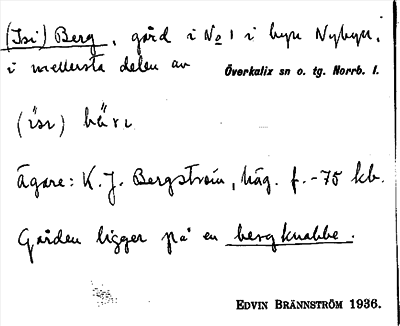 (Isi) Berg, gård i No 1 i byn Nybyn,
i mellersta delen av Överkalix sn o. tg. Norrb. l.
(ı̈sı)
Ägare: K. J. Bergström, häg. f. -75 kb.
Gården ligger på en bergknabbe.
EDVIN BRÄNNSTRÖM 1936.